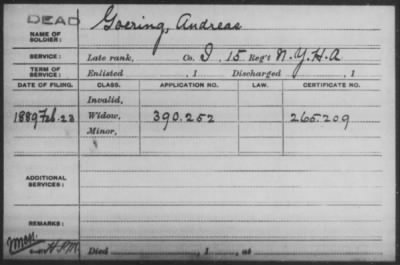 DEAD
NAME OF SOLDIER: Goering, Andreas
SERVICE: Late rank, Co. I, 15 Reg't N.Y.H.A
TERM OF SERVICE: Enlisted , 1 Discharged , 1
DATE OF FILING. CLASS. APPLICATION NO. LAW. CERTIFICATE NO.
Invalid,
1889 Feb. 23 Widow, 390.252 265.209
Minor,
ADDITIONAL SERVICES:
REMARKS:
Died , 1 , at